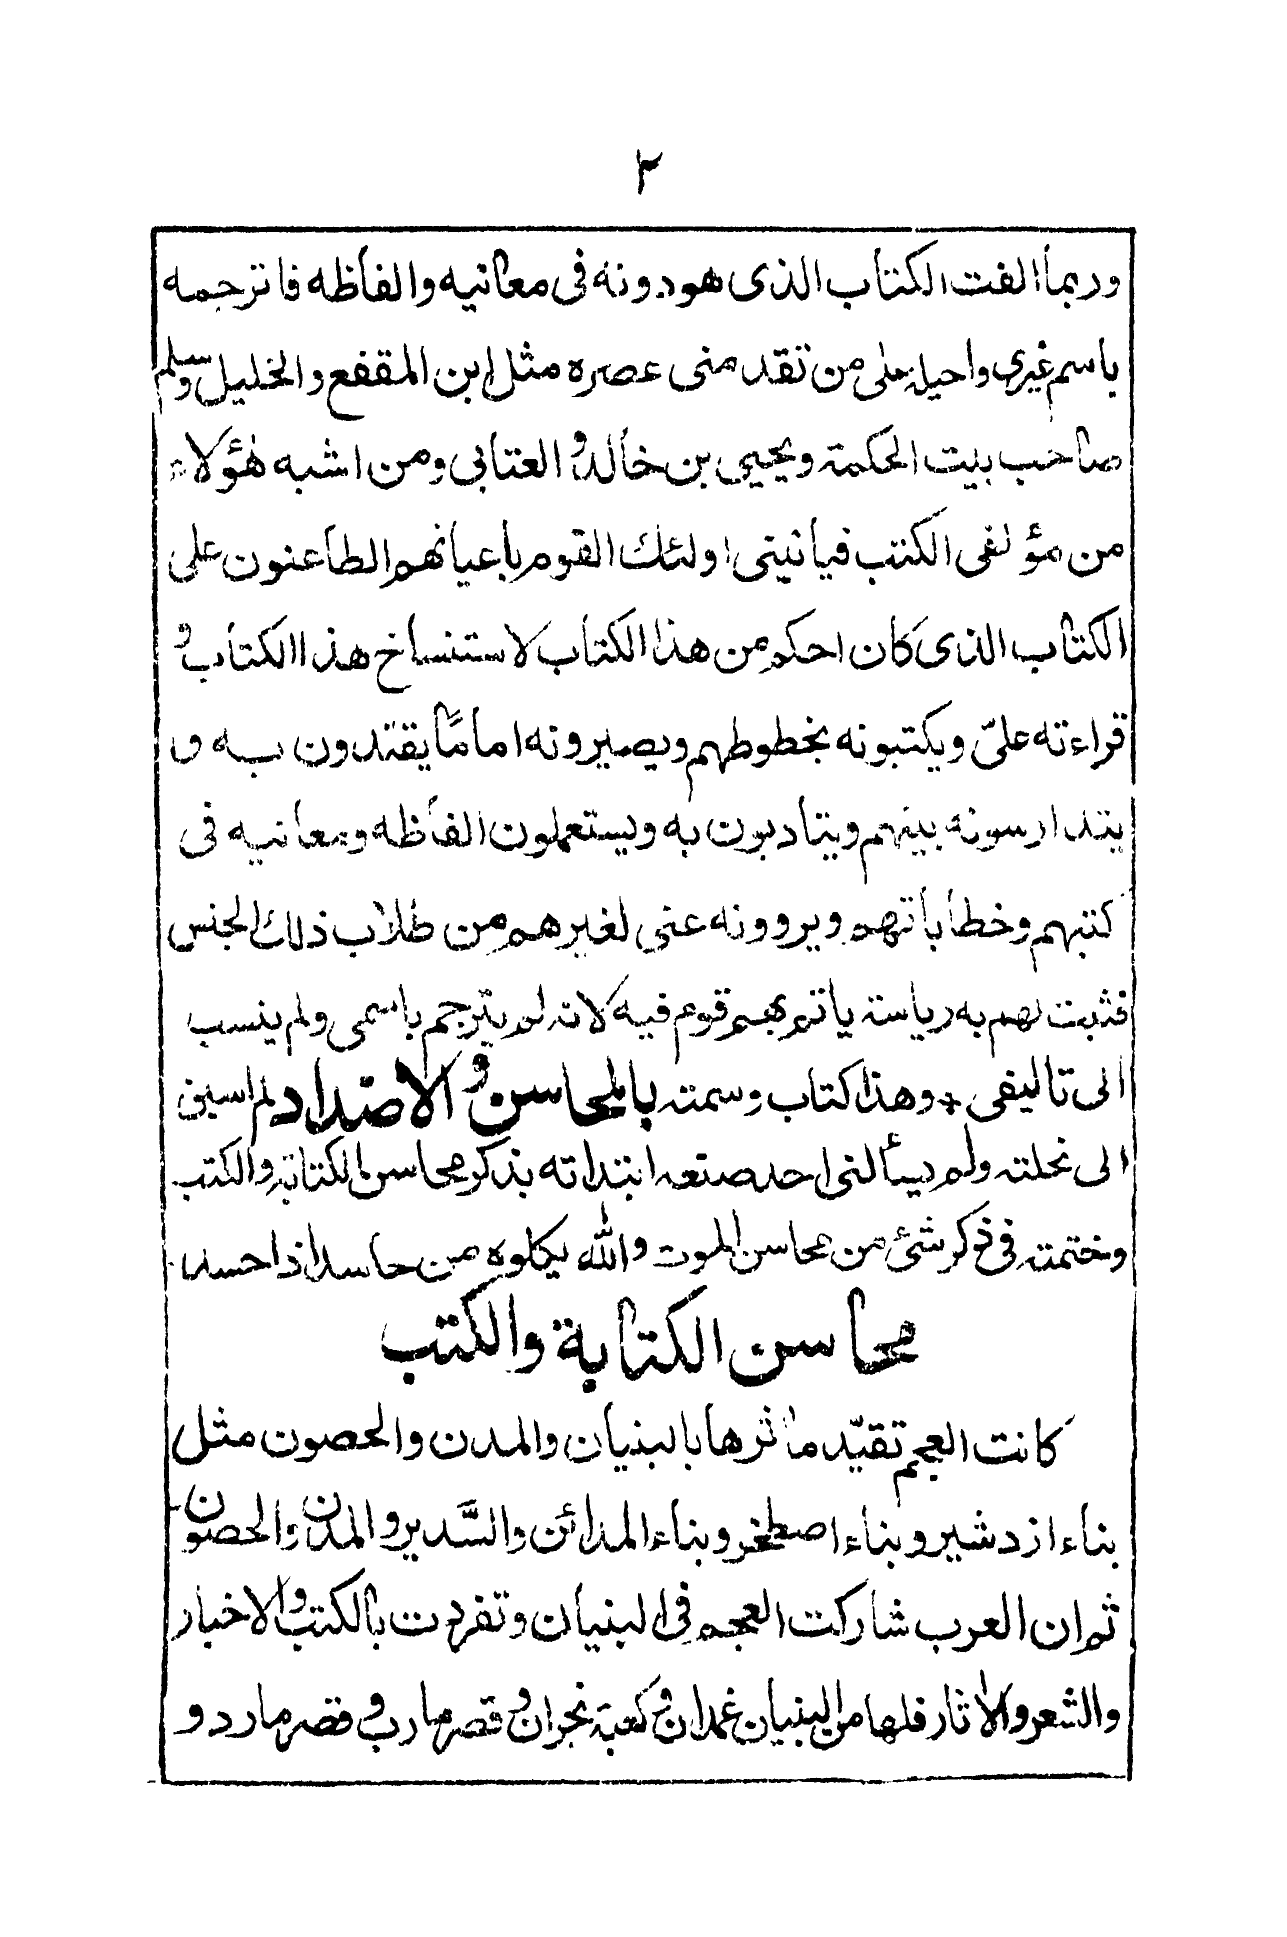 ٢
وربما الفت الكتاب الذى هو دونه فى معانيه والفاظه فاترجمه
باسم غيرى واحيله على من تقدمنى عصره مثل ابن المقفع والخليل وسلم
صاحب بيت الحكمة ويحيى بن خالد و العتابى ومن اشبه هؤلاء
من مؤلفى الكتب فياتينى اولئك القوم باعيانهم الطاعنون على
الكتاب الذى كان احكم من هذا الكتاب لاستنساخ هذا الكتاب و
قراءته علىّ ويكتبونه بخطوطهم ويصيرونه اماما يقتدون به و
يتدارسونه بينهم ويتادبون به ويستعملون الفاظه ومعانيه فى
كتبهم وخطاباتهم ويروونه عنى لغيرهم من طلاب ذلك الجنس
فثبت لهم به رياسة ياتم بهم قوم فيه لانه لم يترجم باسمى ولم ينسب
الى تاليفى * وهذا كتاب وسمته بالمحاسن والاضداد لم اسبق
الى نحلته ولم يسألنى احد صنعه ابتداته بذكر محاسن الكتابة والكتب
وختمته فى ذكر شئ من محاسن الموت والله يكلوه من حاسد اذا حسد
محاسن الكتابة والكتب
كانت العجم تقيّد مآثرها بالبنيان والمدن والحصون مثل
بناء ازدشير وبناء اصطخر وبناء المدائن والسّدير والمدن والحصون
ثم ان العرب شاركت العجم فى البنيان وتفردت بالكتب والاخبار
والشعر والآثار فلها من البنيان غمدان و كعبة نجران و قصر مارب و قصر مارد و